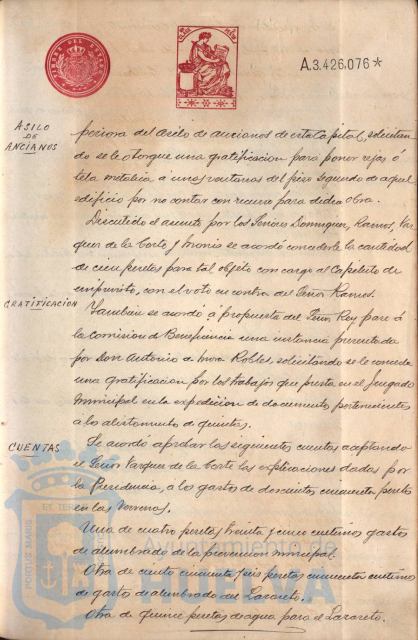 A.3.426.076*
ASILO
DE
ANCIANOS
periora del Asilo de ancianos de esta Capital, solicitan
do se le otorgue una gratificacion para poner rejas ó
tela metalica á unas ventanas del piso segundo de aquel
edificio por no contar con recursos para dicha obra.
Discutido el asunto por los Señores Dominguez, Ramos, Vaz
quez de la Corte y Monis se acordó concederle la cantidad
de cien pesetas para tal objeto con cargo al Capitulo de
imprevistos, con el voto en contra del Señor Ramos.
GRATIFICACION
Tambien se acordó á propuesta del Señor Rey pase á
la Comision de Beneficencia una instancia presentada
por Don Antonio de Robles, solicitando se le conceda
una gratificacion por los trabajos que presta en el Juzgado
Municipal en la expedicion de documentos pertenecientes
á los alistamientos de quintas.
CUENTAS
Se acordó aprobar las siguientes cuentas aceptando
el Señor Vazquez de la Corte las explicaciones dadas por
la Presidencia, á los gastos de doscientas cincuenta pesetas
en las
Una de cuatro pesetas treinta y cinco centimos gastos
de alumbrado de la prevencion municipal.
Otra de ciento cincuenta y seis pesetas cincuenta centimos
de gastos de alumbrado del Lazareto.
Otra de quince pesetas de agua para el Lazareto.